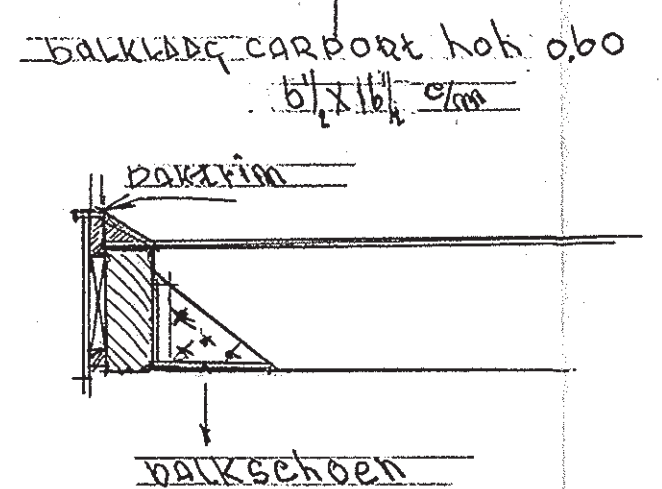 BALKLAAG CARPORT hoh 0,60
6 1/2 X 16 1/2 c/m
DAKTRIM
BALKSCHOEN